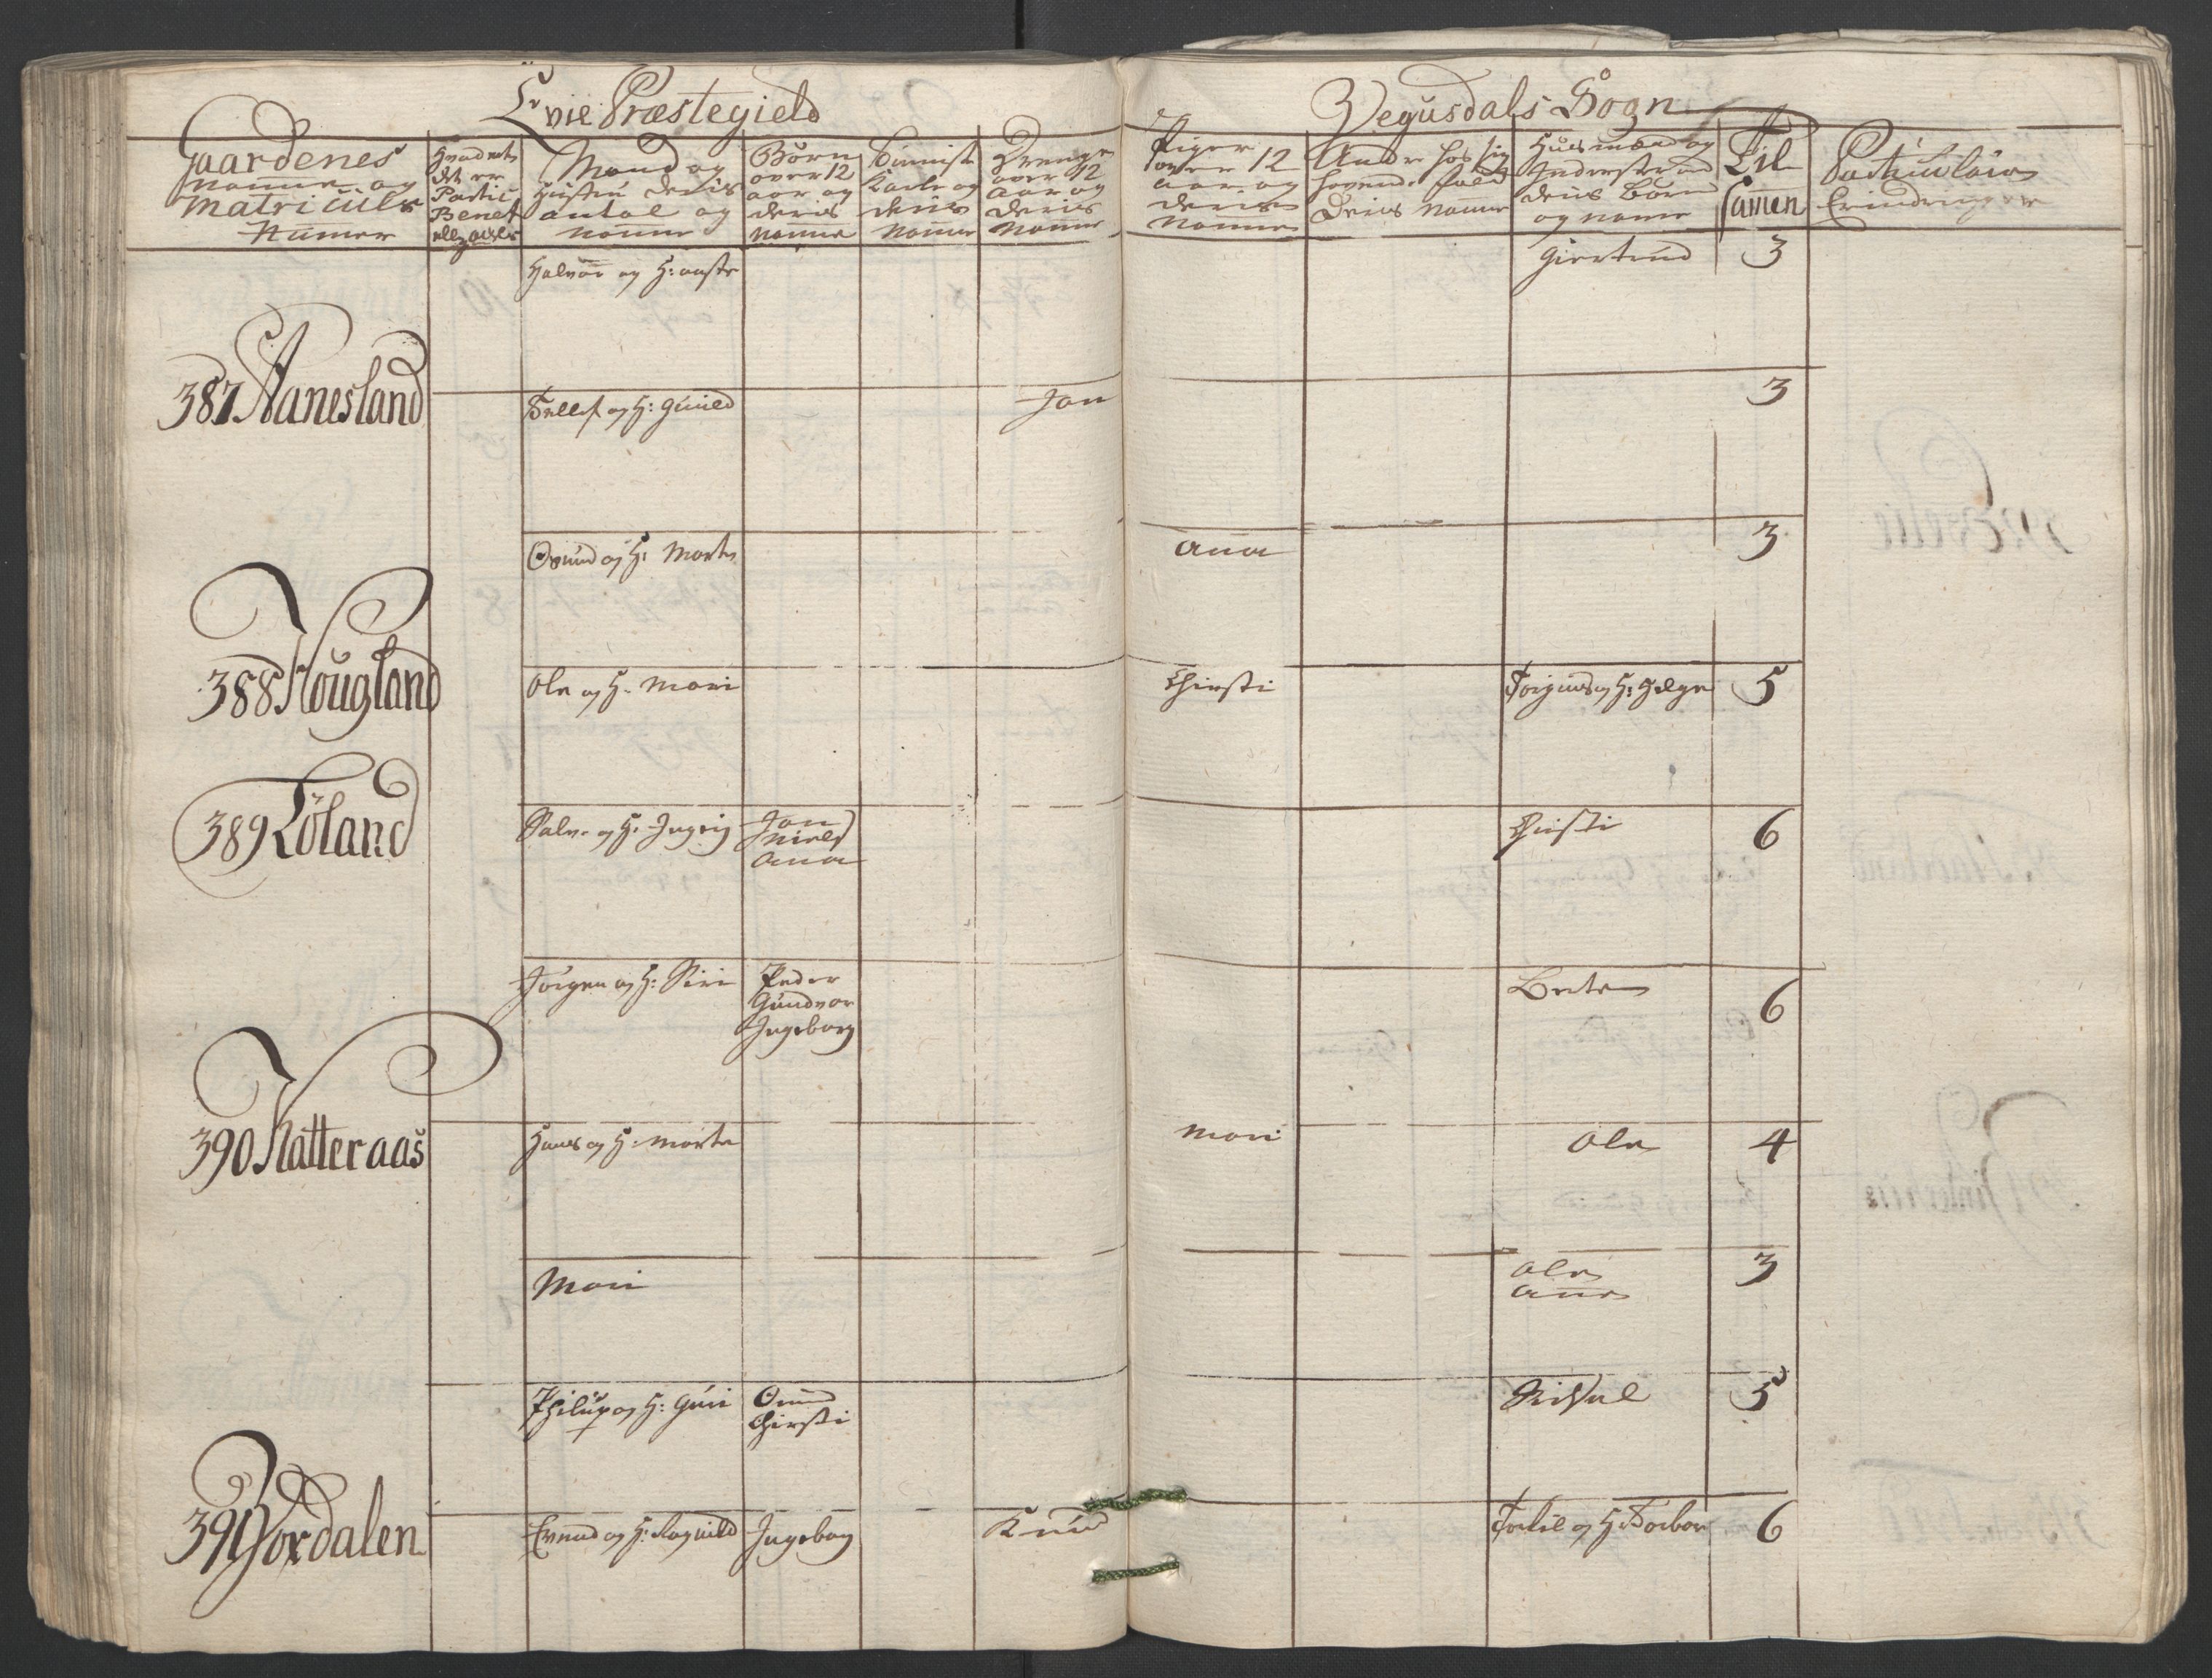 Evie Præstegield
Vegusdals Sogn
Gaardenes
Nanne og
Matriculs
Numer
Partic
Benef
Mand og
Hustru deris
antal og
nanne
Børn
over 12
aar og
deris
nanne
Karle og
deris
Nanne
Drenge
over 12
aar og
deris
Nanne
Piger
over 12
aar og
deris
Nanne
Andre hos sig
havende folk
Deris Nanne
Huusmænd og
Inderster
deris Børn
og nanne
Til
samen
Particulaire
Erindringer
Halvor og H: aaste
Giertrud 3
387 Aanesland
Tellef og H: Gunild Jon 3
Osmund og H: Marte Anna 3
388 Hougland
Ole og H: Mari Chirsti Torgius og H: Helge 5
389 Løland
Salve og H: Ingrig Jon
Niels
Anna
Chirsti 6
Jørgen og H: Siri Peder
Gundvor
Ingeborg
Berte 6
390 Katteraas
Hans og H: Marte Mari Ole 4
Mari Ole
Anne
3
Philup og H: Guri Omund
Chirsti
5
391 Jordalen
Evend og H: Ragnild Ingebor Knud Torkil og H Torbor 6